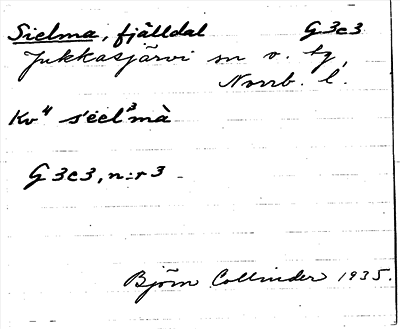 Sielma, fjälldal G3c3
Jukkasjärvi sn o. tg,
Norrb. l.
Kv" sēēl³mà
G3c3, n:r 3
Björn Collinder 1935.